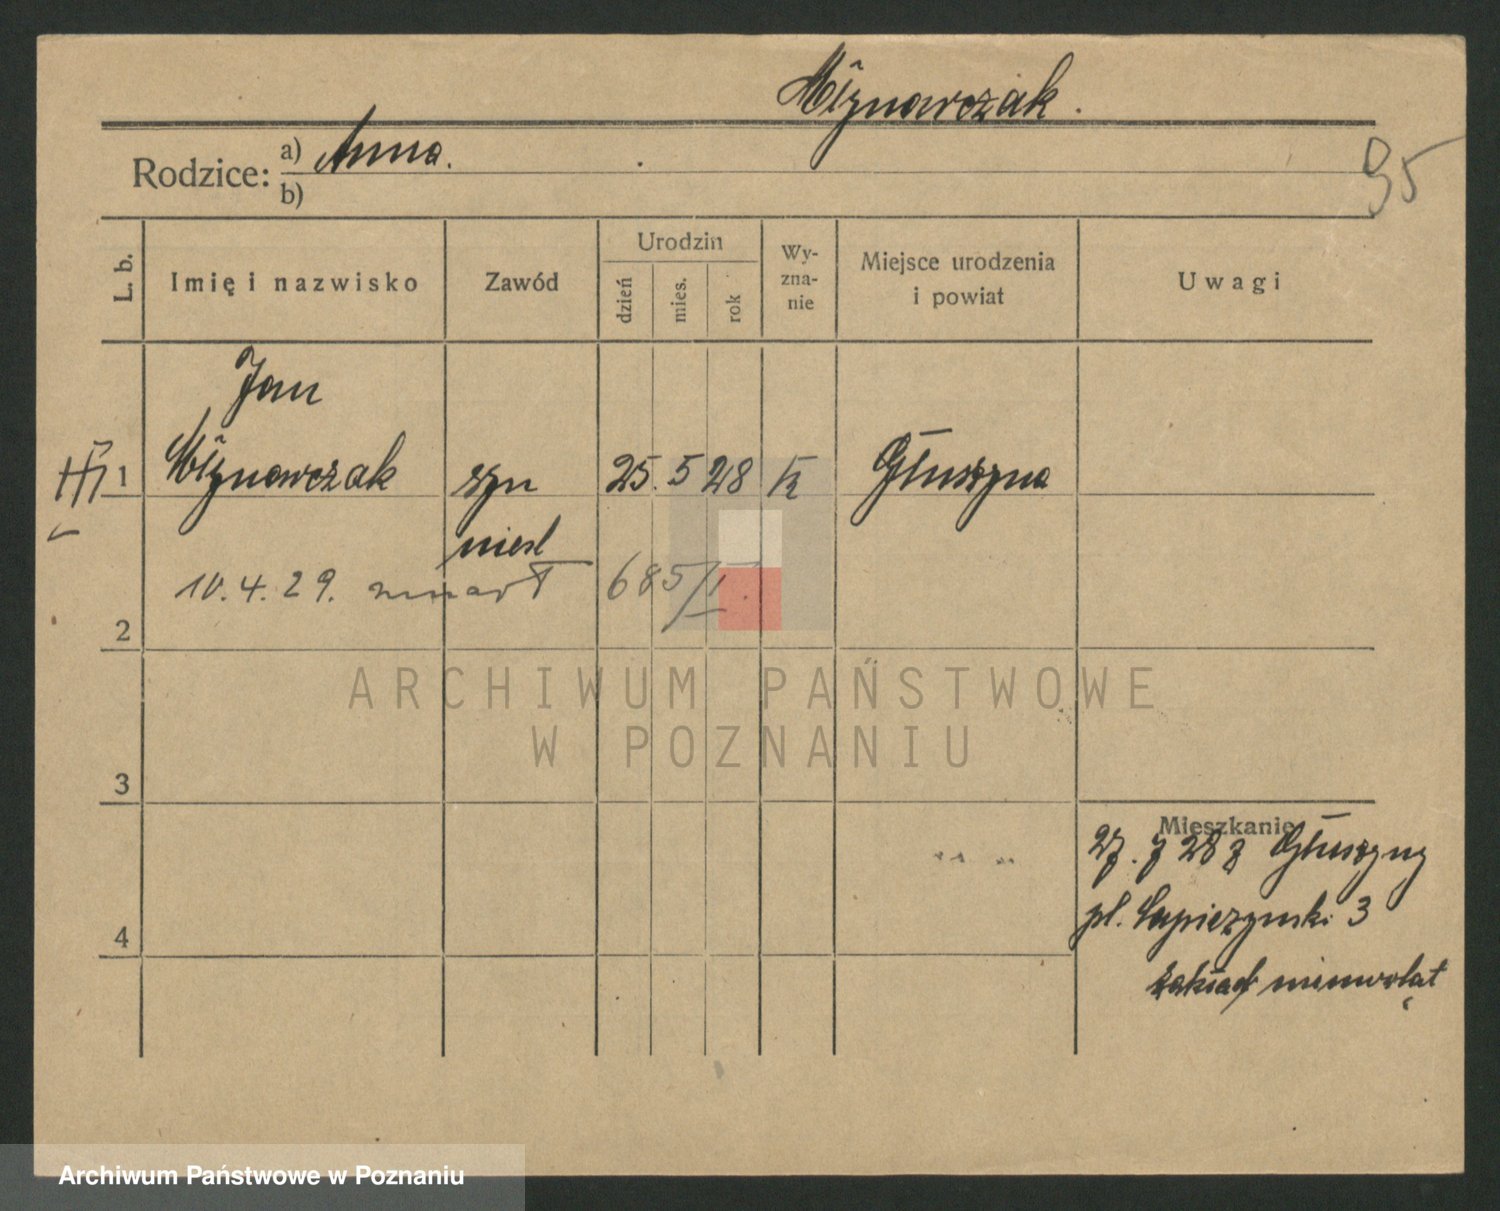 Młynarczak.
Rodzice: a) Anna.
b)
95
L. b.
Imię i nazwisko
Zawód
Urodzin
dzień
mies.
rok
Wy-
zna-
nie
Miejsce urodzenia
i powiat
Uwagi
Jan
1 Młynarczak syn 25. 5 28 k Głuszyna
niesl
10.4.29. zmarł 685/I.
2
3
4
Mieszkanie
27. 7 28 z Głuszyny
pl. Sapieżyński 3
zakład niemowląt
ARCHIWUM PAŃSTWOWE
W POZNANIU
Archiwum Państwowe w Poznaniu